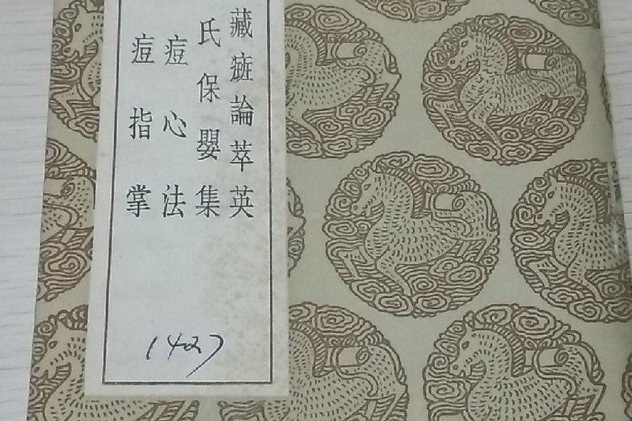 藏癍論萃英
氏保嬰集
痘心法
痘指掌
1427